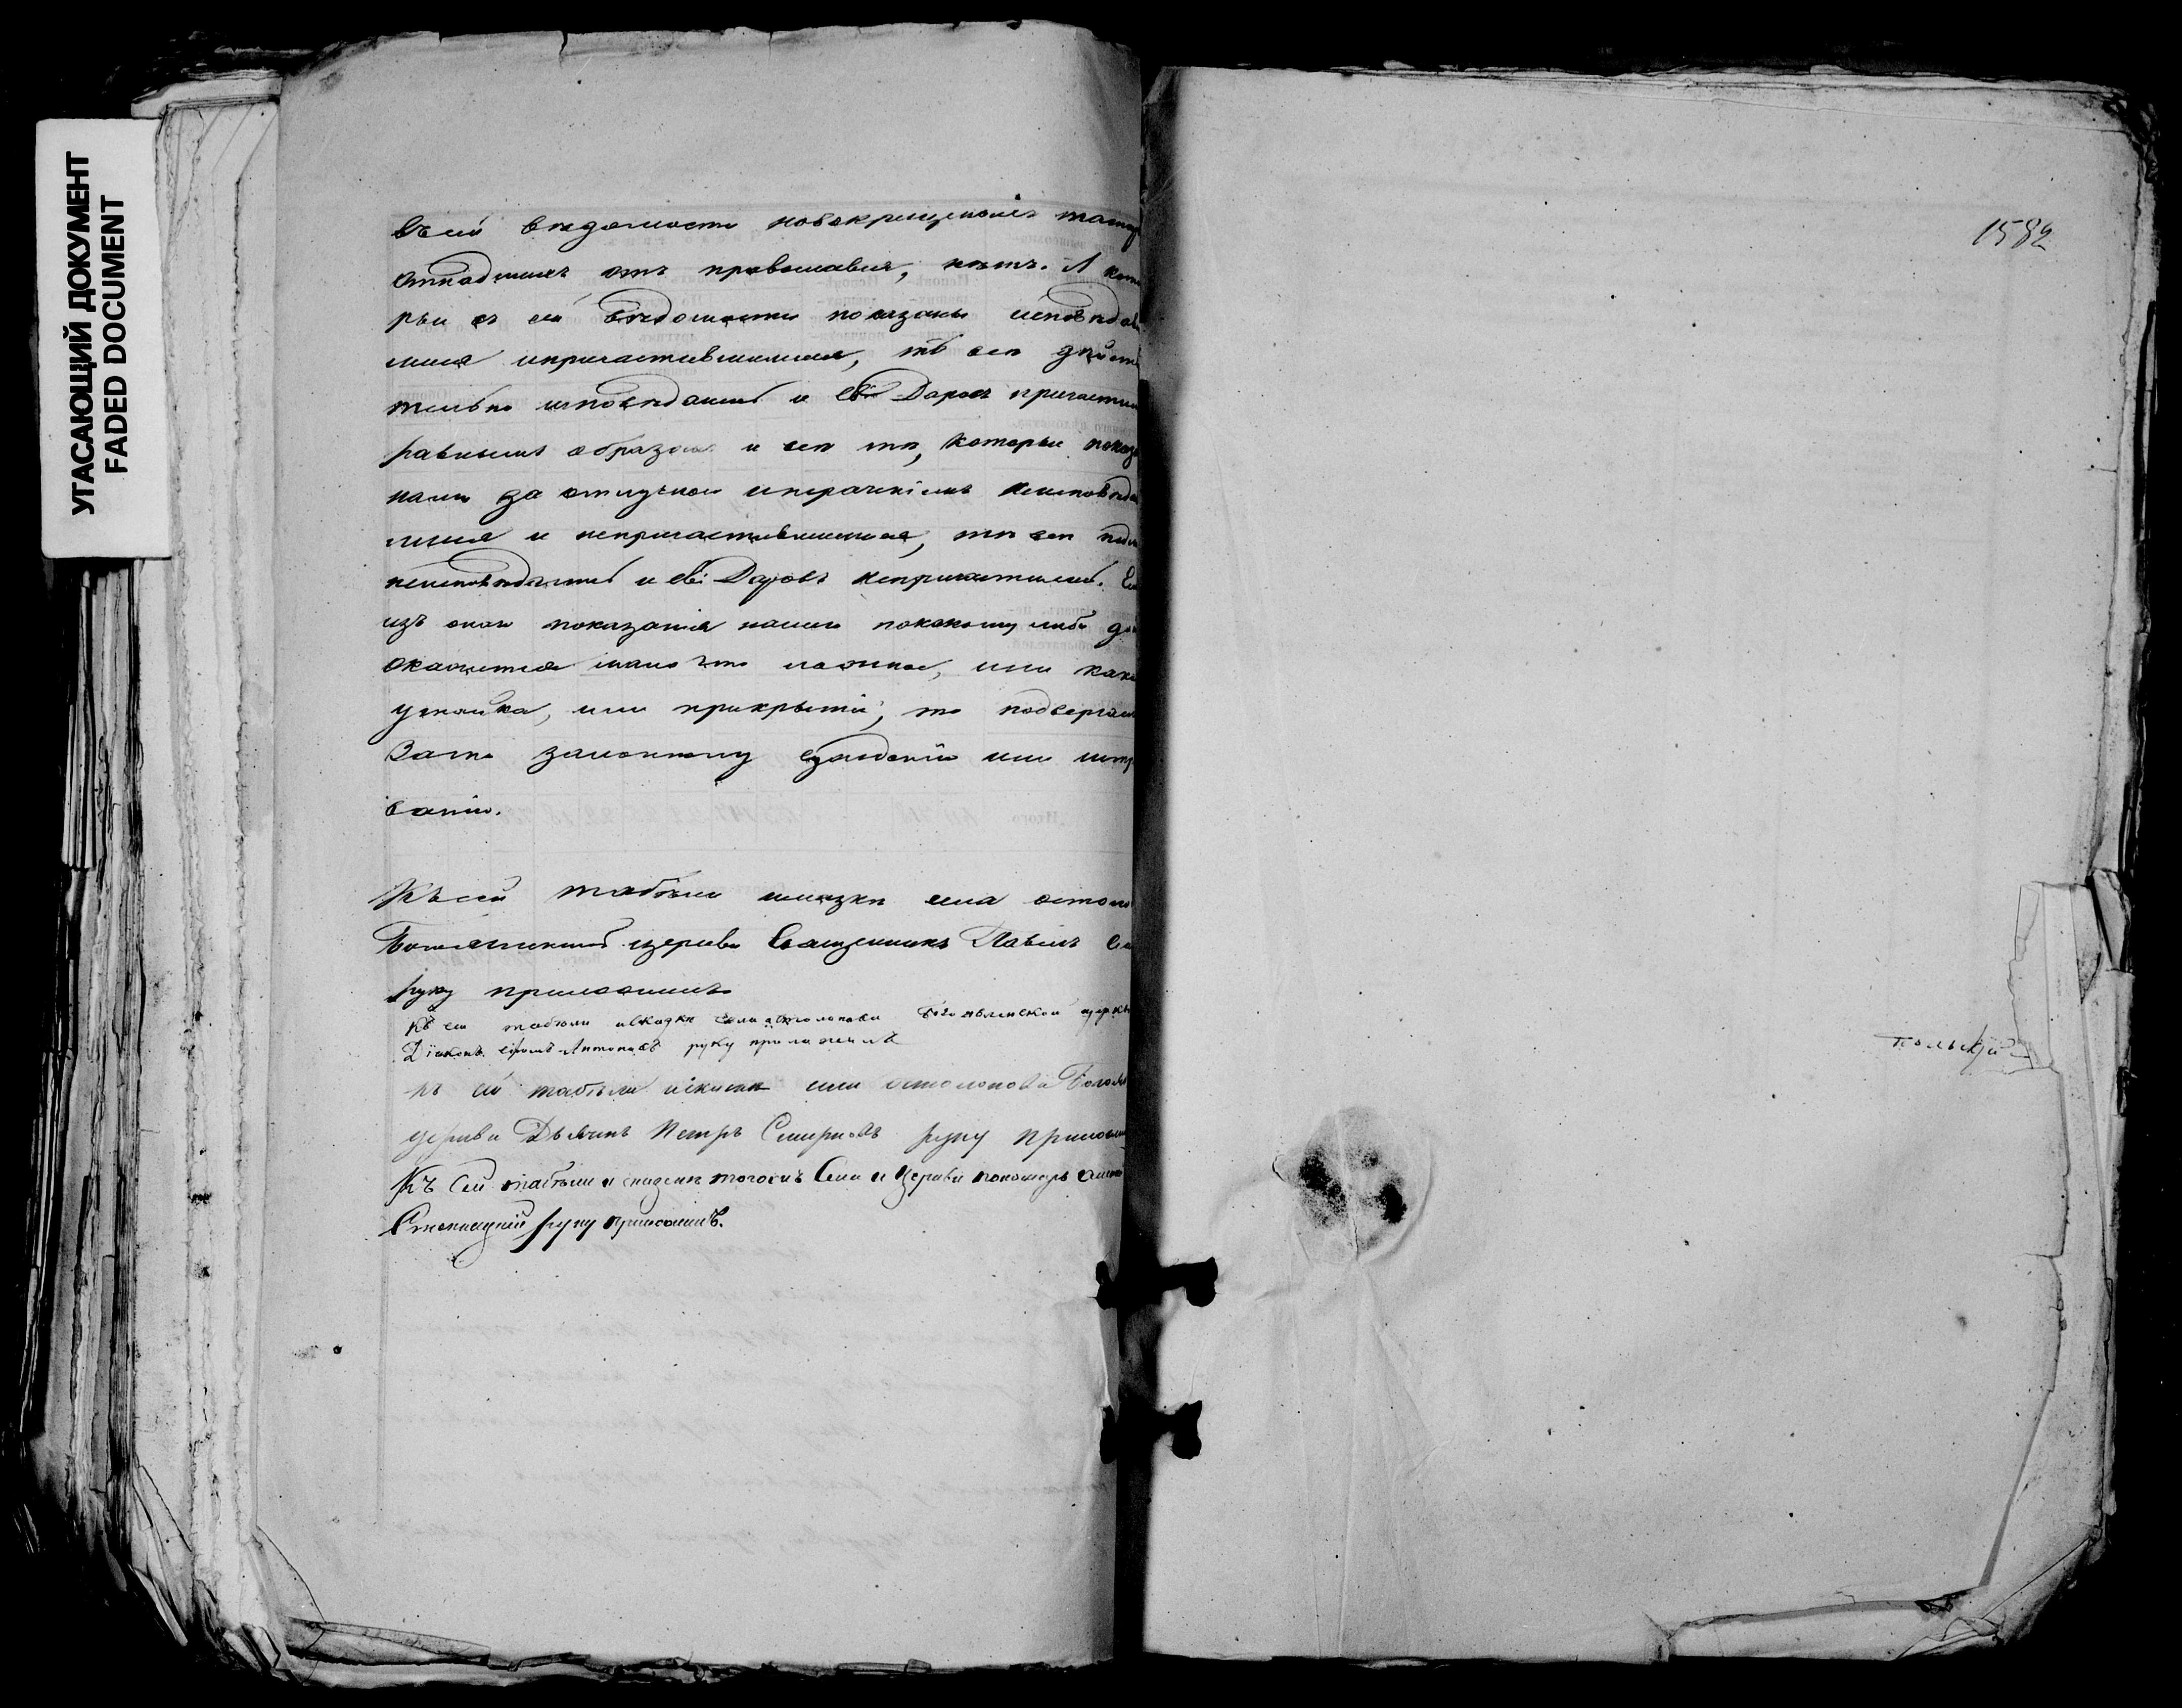 УГАСАЮЩИЙ ДОКУМЕНТ
FADED DOCUMENT
въ сей вѣдомости новокрещеныхъ татар
отпадшихъ отъ православія, нѣтъ. А кото
рые въ сей вѣдомости показаны исповѣдав
шимися и причастившимися, тѣ всѣ дѣйстви
тельно исповѣдались и Св. Даровъ причасти
равнымъ образомъ и всѣ тѣ, которые показа
нами за отлучкою и нерачѣніемъ неисповѣдав
шимися и непричастившимися, тѣ всѣ
неисповѣдались и Св. Даровъ непричастились.
изъ онаго показанія нашего по какому либо
окажется мало что ложное, или какая
утайка, или прикрытіе, то подвергаемъ
За то законному сужденію или штра
ванію.
Къ сей табели сказкѣ села
Богоявленской церкви Священникъ Павелъ
руку приложилъ
Къ сей табели сказки села Остолопова Богоявленской церкви
Діаконъ Антоновъ руку приложилъ
Къ сей табели села Остолопова Богоявл
церкви Дьячекъ Петръ Смирновъ руку приложи
Къ сей табели и сказкѣ того жъ Села и Церкви пономарь
руку приложилъ.
1582